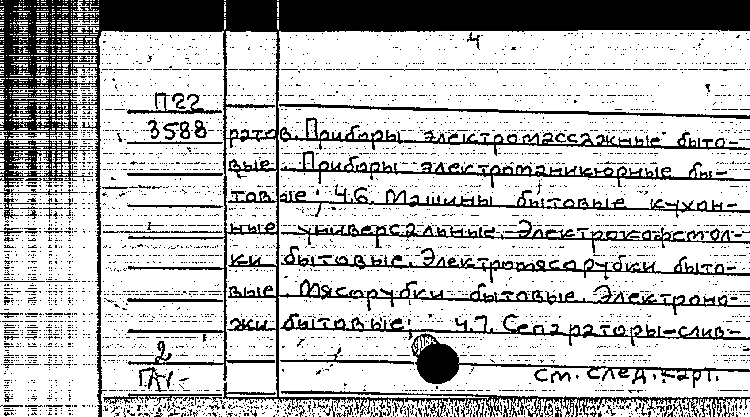 4
П22
3588 ратов. Приборы электромассажные быто-
вые. Приборы электроманикюрные бы-
товые; Ч.6. Машины бытовые кухон-
ные универсальные. Электрокофемол-
ки бытовые. Электромясорубки быто-
вые. Мясорубки бытовые. Электроно-
жи бытовые; Ч.7. Сепараторы-слив-
2
см. след. карт.